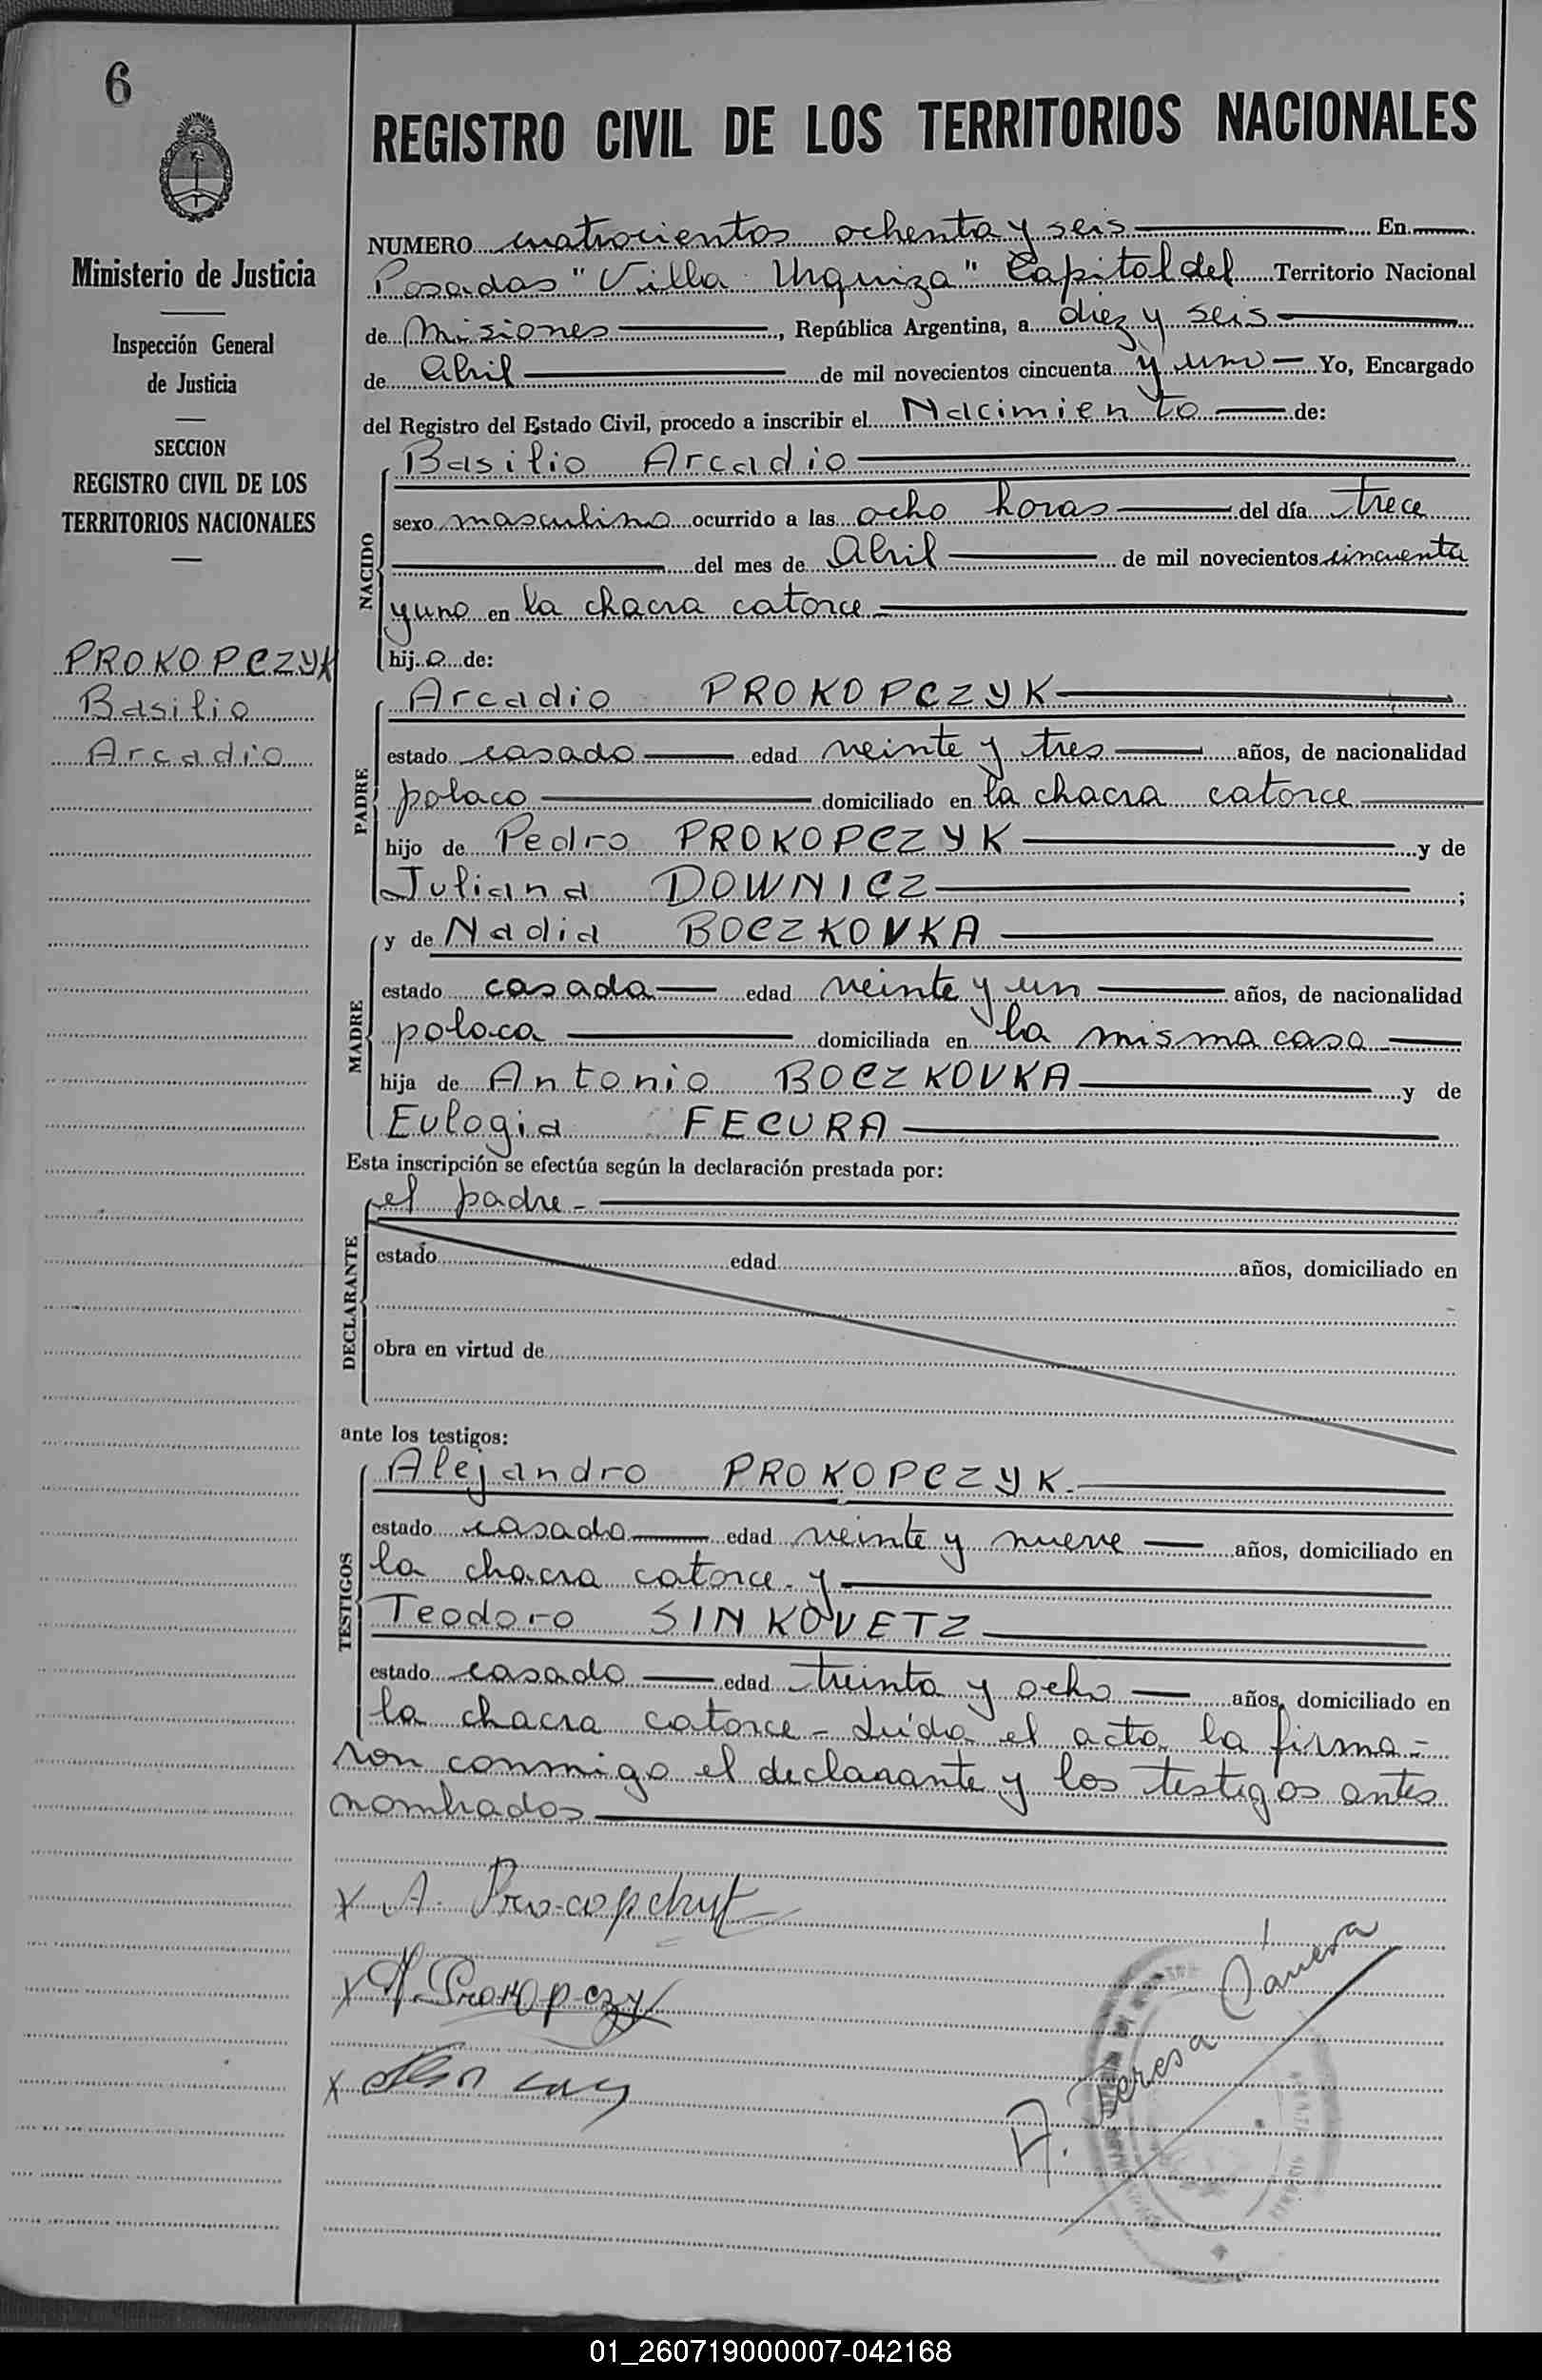 6
REGISTRO CIVIL DE LOS TERRITORIOS NACIONALES
Ministerio de Justicia
Inspección General
de Justicia
SECCION
REGISTRO CIVIL DE LOS
TERRITORIOS NACIONALES
PROKOPCZYK
Basilio
Arcadio
NUMERO cuatrocientos ochenta y seis En
Posadas "Villa Urquiza" Capital del Territorio Nacional
de Misiones, República Argentina, a diez y seis
de Abril de mil novecientos cincuenta y uno Yo, Encargado
del Registro del Estado Civil, procedo a inscribir el Nacimiento de:
NACIDO
Basilio Arcadio
sexo masculino ocurrido a las ocho horas del día trece
del mes de Abril de mil novecientos cincuenta
y uno en la chacra catorce
hijo de:
PADRE
Arcadio PROKOPCZYK
estado casado edad veinte y tres años, de nacionalidad
polaco domiciliado en la chacra catorce
hijo de Pedro PROKOPCZYK y de
Juliana DOWNICZ ;
MADRE
y de Nadia BOCZKOVKA
estado casada edad veinte y un años, de nacionalidad
polaca domiciliada en la misma casa
hija de Antonio BOCZKOVKA y de
Eulogia FECURA
Esta inscripción se efectúa según la declaración prestada por:
DECLARANTE
el padre
estado edad años, domiciliado en
obra en virtud de
ante los testigos:
TESTIGOS
Alejandro PROKOPCZYK
estado casado edad veinte y nueve años, domiciliado en
la chacra catorce y
Teodoro SINKOVETZ
estado casado edad treinta y ocho años, domiciliado en
la chacra catorce - Leída el acta la firma-
ron conmigo el declarante y los testigos antes
nombrados
x A. Procopchyk
x A. Prokopczy
x
A. Teresa
01_260719000007-042168